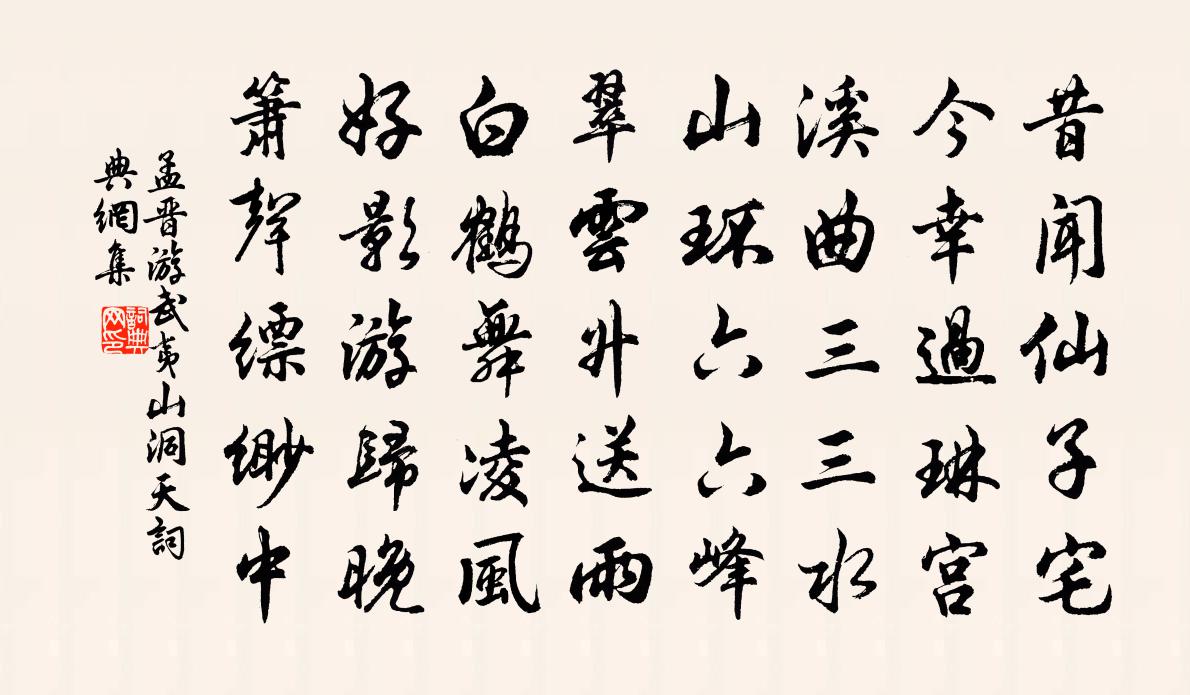 昔聞仙子宅
今幸過琳宮
溪曲三三水
山環六六峰
翠雲升送雨
白鶴舞凌風
好影游歸晚
簫聲縹緲中
孟晋游武夷山洞天詞
典網集
詞典网印